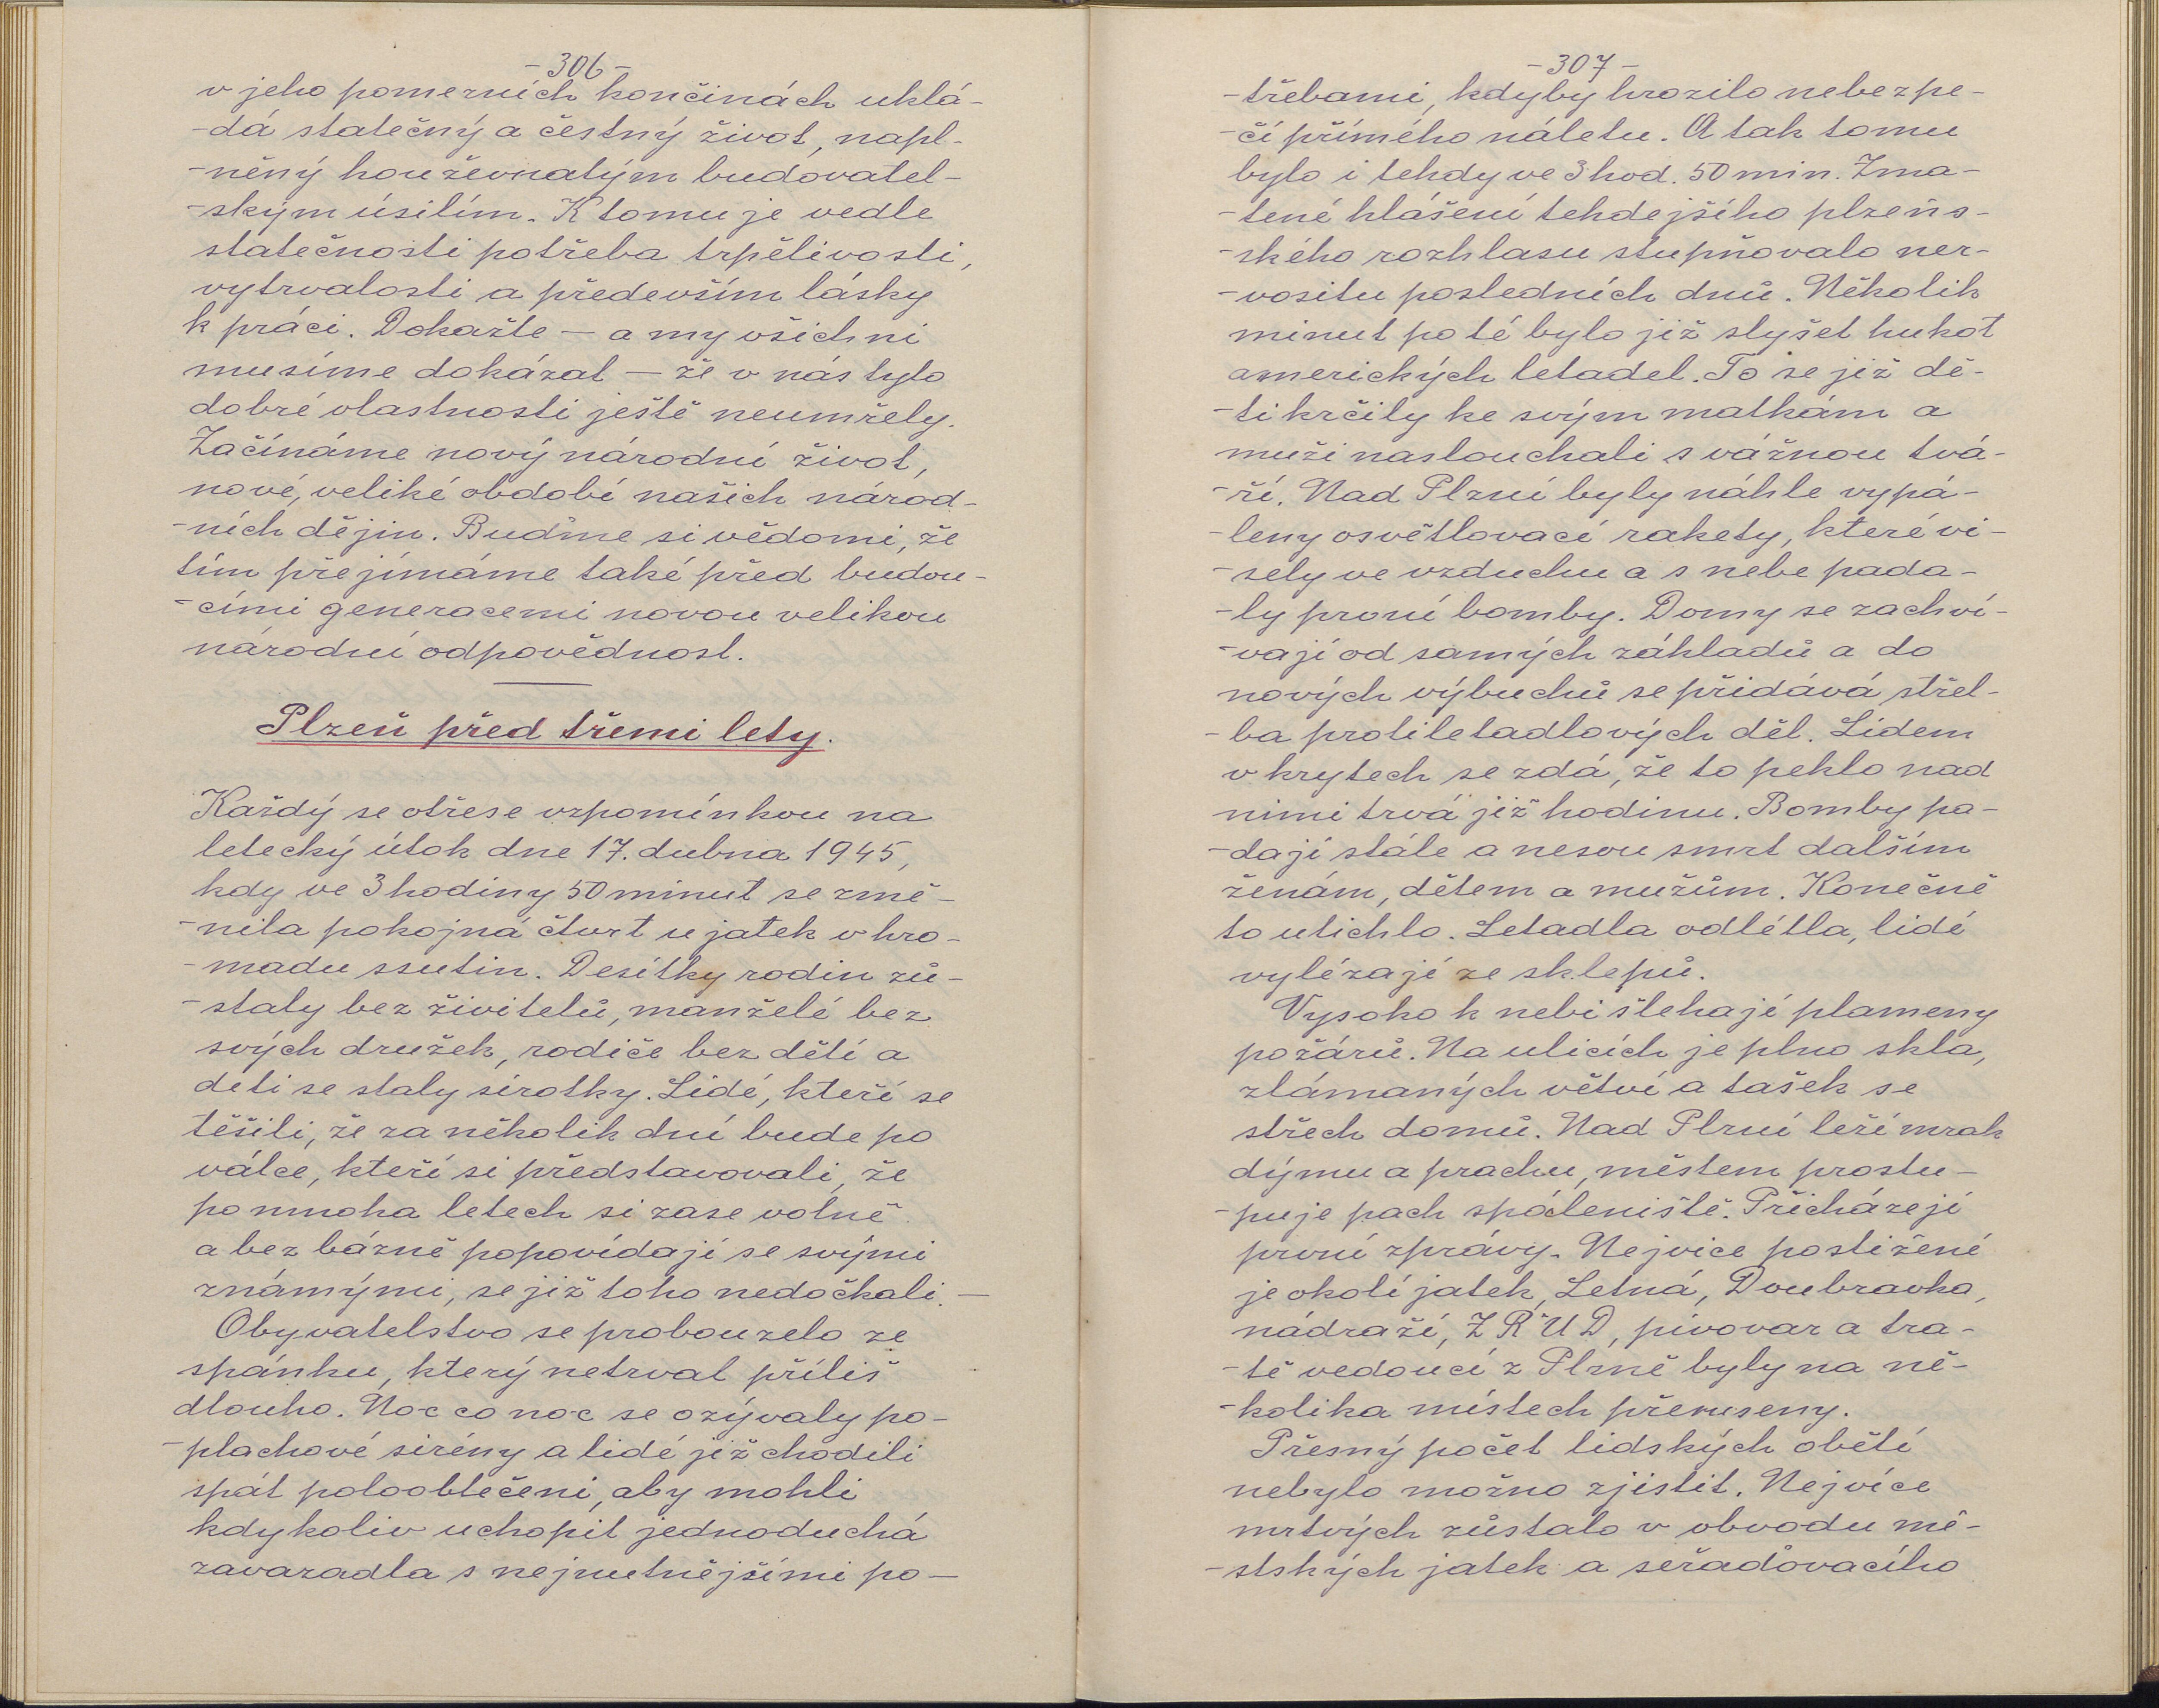 -306-
v jeho pomezních končinách uklá-
-dá statečný a čestný život, napl-
-něný houževnatým budovatel-
-ským úsilím. K tomu je vedle
statečnosti potřeba trpělivosti,
vytrvalosti a především lásky
k práci. Dokažte — a my všichni
musíme dokázat — že v nás tyto
dobré vlastnosti ještě neumřely.
Začínáme nový národní život,
nové, veliké období našich národ-
-ních dějin. Buďme si vědomi, že
tím přejímáme také před budou-
-cími generacemi novou velikou
národní odpovědnost.
Plzeň před třemi lety.
Každý se otřese vzpomínkou na
letecký útok dne 17. dubna 1945,
kdy ve 3 hodiny 50 minut se změ-
-nila pokojná čtvrt u jatek v hro-
-madu ssutin. Desítky rodin zů-
-staly bez živitelů, manželé bez
svých družek, rodiče bez dětí a
deti se staly sirotky. Lidé, kteří se
těšili, že za několik dní bude po
válce, kteří si představovali, že
po mnoha letech si zase volně
a bez bázně popovídají se svými
známými, se již toho nedočkali. —
Obyvatelstvo se probouzelo ze
spánku, který netrval příliš
dlouho. Noc co noc se ozývaly po-
-plachové sirény a lidé již chodili
spát polooblečeni, aby mohli
kdykoliv uchopit jednoduchá
zavazadla s nejnutnějšími po-
-307-
-třebami, kdyby hrozilo nebezpe-
-čí přímého náletu. A tak tomu
bylo i tehdy ve 3 hod. 50 min. Zma-
-tené hlášení tehdejšího plzeňs-
-kého rozhlasu stupňovalo ner-
-vositu posledních dnů. Několik
minut po té bylo již slyšet hukot
amerických letadel. To se již dě-
-ti krčily ke svým matkám a
muži naslouchali s vážnou tvá-
-ří. Nad Plzní byly náhle vypá-
-leny osvětlovací rakety, které vi-
-sely ve vzduchu a s nebe pada-
-ly první bomby. Domy se zachví-
-vají od samých základů a do
nových výbuchů se přidává střel-
-ba protiletadlových děl. Lidem
v krytech se zdá, že to peklo nad
nimi trvá již hodinu. Bomby pa-
-dají stále a nesou smrt dalším
ženám, dětem a mužům. Konečně
to utichlo. Letadla odlétla, lidé
vylézají ze sklepů.
Vysoko k nebi šlehají plameny
požárů. Na ulicích je plno skla,
zlámaných větví a tašek se
střech domů. Nad Plzní leží mrak
dýmu a prachu, městem prostu-
-puje pach spáleniště. Přicházejí
první zprávy. Nejvíce postižené
je okolí jatek, Letná, Doubravka,
nádraží, ZRUD, pivovar a tra-
-tě vedoucí z Plzně byly na ně-
-kolika místech přerušeny.
Přesný počet lidských obětí
nebylo možno zjistit. Nejvíce
mrtvých zůstalo v obvodu mě-
-stských jatek a seřaďovacího